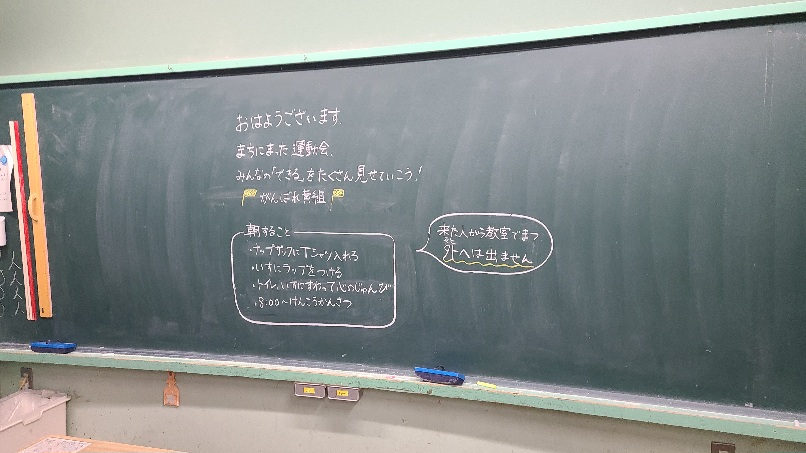 おはようございます。
まちにまった運動会。
みんなの「できる」をたくさん見せていこう!
がんばれ黄組
朝すること
・ナップザックにTシャツ入れる
・いすにラップをつける
・トイレ、いすにすわって心のじゅんび…
・8:00〜けんこうかんさつ
来た人から教室でまつ
外へは出ません